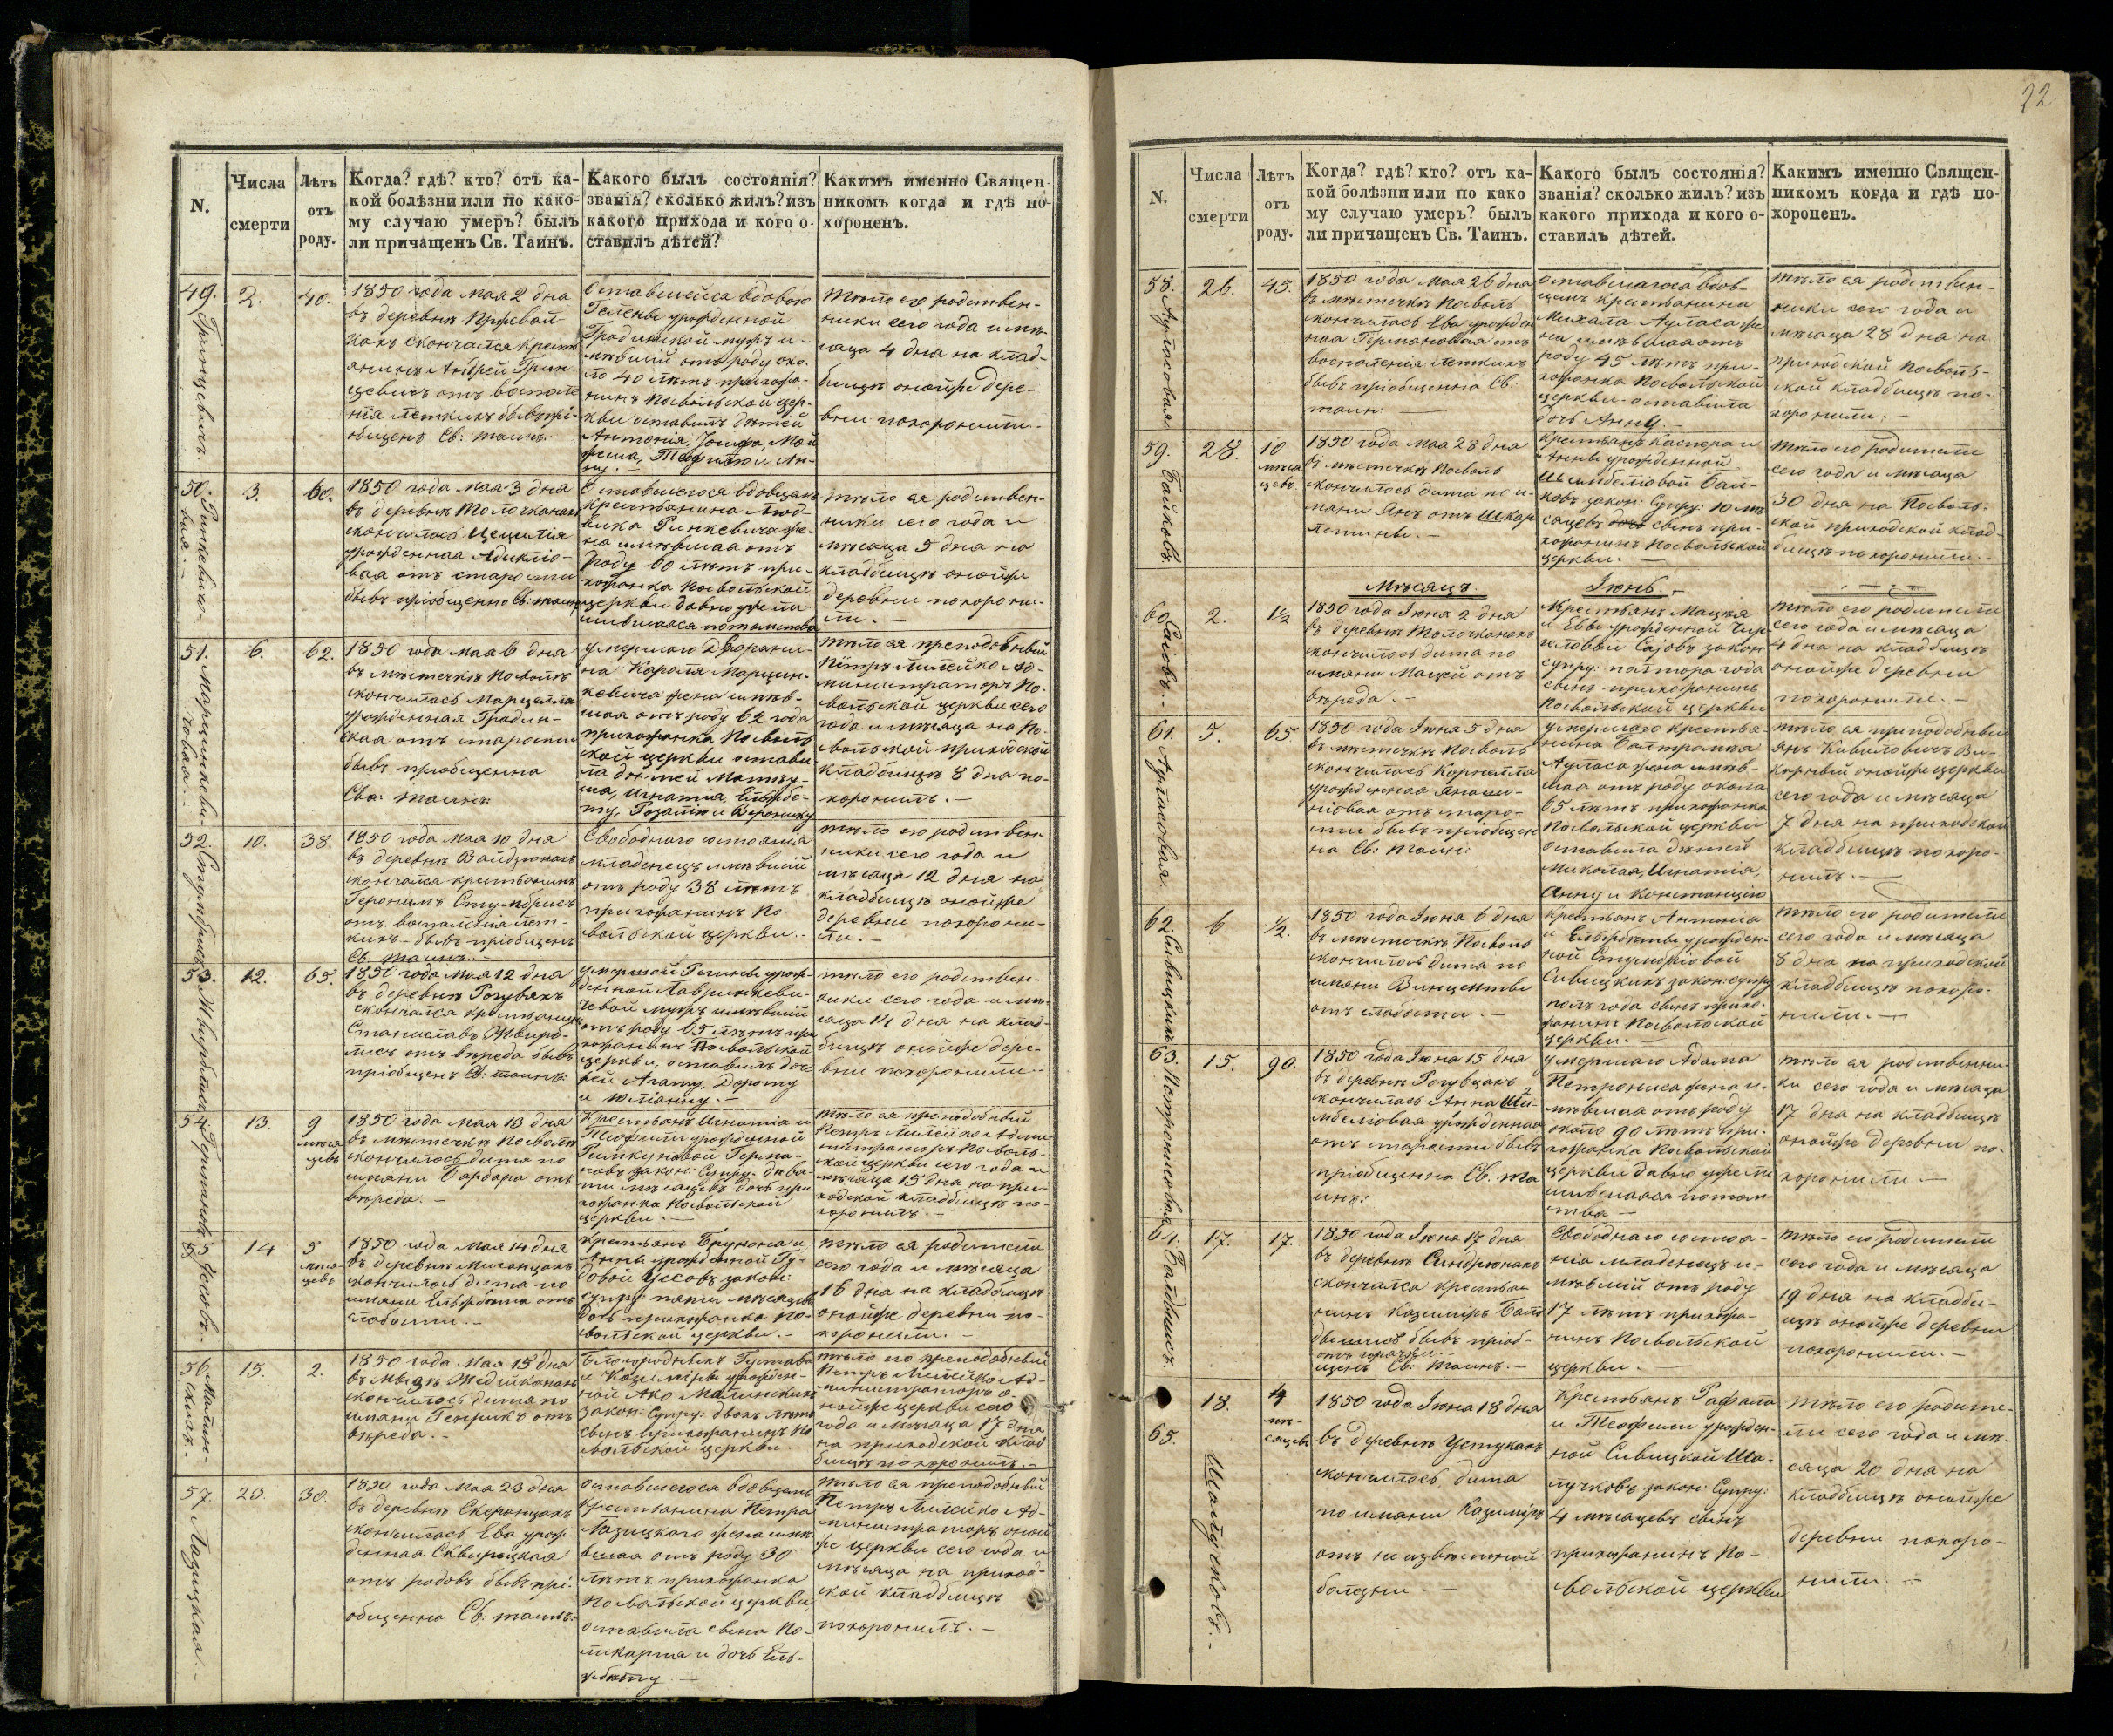 22
N.
Числа смерти
Лѣтъ отъ роду.
Когда? гдѣ? кто? отъ ка-
кой болѣзни или по како-
му случаю умеръ? былъ
ли причащенъ Св. Таинъ.
Какого былъ состоянія?
званія? сколько жилъ? изъ
какого прихода и кого о-
ставилъ дѣтей?
Какимъ именно Священ-
никомъ когда и гдѣ по-
хороненъ.
49.
Гринцевичъ.
2.
40.
1850 года мая 2 дня
въ деревнѣ
скончался крест-
янинъ Андрей Грин-
цевичъ отъ воспале-
нія легкихъ бывъ прі-
общенъ Св: таинъ.
Оставшейся вдовою
Гелены урожденной
мужъ и-
мѣвшій отъ роду око-
ло 40 лѣтъ прихожа-
нинъ Повольской цер-
кви оставилъ дѣтей
Антонія, Іосифа,
и Ан-
ну.
тѣло его родствен-
ники сего года и мѣ-
сяца 4 дня на клад-
бищѣ онойже дере-
вни похоронили.
50.
Ринкевичо-
вая.
3.
60.
1850 года мая 3 дня
въ деревнѣ Толочканахъ
скончалась Цецилія
урожденная
вая отъ старости
бывъ пріобщенна Св: таинъ
Оставшегося вдовцемъ
крестьянина Люд-
вика Ринкевича же-
на имѣвшая отъ
роду 60 лѣтъ при-
хожанка Повольской
церкви давно уже ли-
шившаяся потомства
тѣло ея родствен-
ники сего года и
мѣсяца 5 дня на
кладбищѣ онойже
деревни похорони-
ли. –
51.
Марцинкеви-
човая.
6.
62.
1850 года мая 6 дня
въ мѣстечкѣ Поволѣ
скончалась Марцелла
урожденная Градин-
ская отъ старости
бывъ пріобщенна
Свя: таинъ
умершаго Дворяни-
на Кароля Марцин-
кевича жена имѣв-
шая отъ роду 62 года
прихожанка Поволь-
ской церкви остави-
ла дѣтей
Игнатія, Ельжбе-
ту, Розалію и Веронику
тѣло ея преподобный
Петръ Милейко Ад-
министраторъ По-
вольской церкви сего
года и мѣсяца на По-
вольской приходской
кладбищѣ 8 дня по-
хоронилъ. –
52.
Стумбрисъ
10.
38.
1850 года мая 10 дня
въ деревнѣ
скончался крестьянинъ
Геронимъ Стумбрисъ
отъ воспаленія лег-
кихъ – бывъ пріобщенъ
Св. таинъ. –
Свободнаго состоянія
младенецъ имѣвшій
отъ роду 38 лѣтъ
прихожанинъ По-
вольской церкви. –
тѣло его родствен-
ники сего года и
мѣсяца 12 дня на
кладбищѣ онойже
деревни похорони-
ли. –
53.
12.
65.
1850 года мая 12 дня
въ деревнѣ
скончался крестьянинъ
Станиславъ
отъ вреда бывъ
пріобщенъ Св. таинъ.
умершей урож-
денной Лавринкеви-
чевой мужъ имѣвшій
отъ роду 65 лѣтъ при-
хожанинъ Повольской
церкви, оставилъ доче-
рей Агату, Дороту
и Юліанну. –
тѣло его родствен-
ники сего года и мѣ-
сяца 14 дня на клад-
бищѣ онойже дере-
вни похоронили. –
54.
Германовъ
13.
9
мѣся-
цевъ
1850 года мая 13 дня
въ мѣстечкѣ Поволѣ
скончалось дитя по
имяни Барбара отъ
вреда. –
Крестьянъ Игнатія и
Теофили урожденой
Римкуновой Герма-
новъ закон: Супру: девя-
ти мѣсяцевъ дочь при-
хожанка Повольской
церкви. –
тѣло ея преподобный
Петръ Милейко Адми-
нистраторъ Поволь-
ской церкви сего года и
мѣсяца 15 дня на при-
ходской кладбищѣ по-
хоронилъ. –
55
14
5
мѣся-
цевъ
1850 года Мая 14 дня
въ деревнѣ
скончалось дитя по
имяни Ельжбета отъ
слабости. –
Крестьянъ
Анны урожденной Гу-
довой закон:
супру: пяти мѣсяцевъ
дочь прихожанка По-
вольской церкви. –
тѣло ея родители
сего года и мѣсяца
16 дня на кладбищѣ
онойже деревни по-
хоронили. –
56.
Малин-
скихъ.
15.
2.
1850 года Мая 15 дня
въ
скончалось дитя по
имяни Генрикъ отъ
вреда. –
Благородныхъ Густава
и Казимиры урожден-
ной Малинскихъ
закон: Супру: двохъ лѣтъ
сынъ прихожанинъ По-
вольской церкви. –
тѣло его преподобный
Петръ Милейко Ад-
министраторъ о-
нойже церкви сего
года и мѣсяца 17 дня
на приходской клад-
бищѣ похоронилъ. –
57.
Лазицкая. –
23.
30.
1850 года Мая 23 дня
въ деревнѣ
скончалась Ева урож-
денная Сквирецкая
отъ родовъ – бывъ прі-
общенна Св: таинъ. –
оставшегося вдовцемъ
крестьянина Петра
Лазицкого жена имѣ-
вшая отъ роду 30
лѣтъ прихожанка
Повольской церкви,
оставила сына По-
ликарпа и дочь Ель-
жбету. –
тѣло ея преподобный
Петръ Милейко Ад-
министраторъ оной-
же церкви сего года и
мѣсяца на приход-
ской кладбищѣ
похоронилъ. –
N.
Числа смерти
Лѣтъ отъ роду.
Когда? гдѣ? кто? отъ ка-
кой болѣзни или по како
му случаю умеръ? былъ
ли причащенъ Св. Таинъ.
Какого былъ состоянія?
званія? сколько жилъ? изъ
какого прихода и кого о-
ставилъ дѣтей.
Какимъ именно Священ-
никомъ когда и гдѣ по-
хороненъ.
58.
Ауласовая.
26.
45.
1850 года мая 26 дня
въ мѣстечкѣ Поволѣ
скончилась Ева урожден
ная Германовая отъ
воспаленія легкихъ
бывъ пріобщенна Св:
таин: –
оставшагося вдов-
цемъ крестьянина
Михала Ауласа же-
на имѣвшая отъ
роду 45 лѣтъ при-
хожанка Повольской
церкви – оставила
дочь Анну. –
тѣло ея родствен-
ники сего года и
мѣсяца 28 дня на
приходской Поволь-
ской кладбищѣ по-
хоронили. –
59.
Байковъ.
28.
10
мѣся
цевъ
1850 года мая 28 дня
въ мѣстечкѣ Поволѣ
скончилось дитя по и-
мяни Янъ отъ Шкар-
летины. –
Крестьянъ Каспера и
Анны урожденной
Шимбеліовой Бай-
ковъ закон: Супру: 10 мѣ
сяцевъ сынъ при-
хожанинъ Повольской
церкви. –
тѣло его родители
сего года и мѣсяца
30 дня на Поволь-
ской приходской клад-
бищѣ похоронили. –
Мѣсяцъ Іюнь. –
60.
Саіовъ. –
2.
1½
1850 года Іюня 2 дня
въ деревнѣ Толочканахъ
скончилось дитя по
имяни Мацей отъ
вреда. –
Крестьянъ Мацея
и Евы урожденной
Саіовъ закон:
супру: полтора года
сынъ прихожанинъ
Повольской церкви
тѣло его родители
сего года и мѣсяца
4 дня на кладбищѣ
онойже деревни
похоронили. –
61.
Ауласовая.
5.
65
1850 года Іюня 5 дня
въ мѣстечкѣ Поволѣ
скончилась Корнелла
урожденная
отъ старо-
сти бывъ пріобщен
на Св: таин:
умершаго крестья-
нина Балтрамея
Ауласа жена имѣв-
шая отъ роду около
65 лѣтъ прихожанка
Повольской церкви
оставила дѣтей
Миколая, Игнатія,
Анну и Констанцію
тѣло ея приподобный
Янъ Кивиловичъ Ви-
карный онойже церкви
сего года и мѣсяца
7 дня на приходской
кладбищѣ похоро-
нилъ. –
62.
Сивицкихъ
6.
½.
1850 года Іюня 6 дня
въ мѣстечкѣ Поволѣ
скончилось дитя по
имяни Винценты
отъ слабости. –
Крестьянъ Антонія
и Ельжбеты урожден-
ной Стумбріовой
Сивицкихъ закон: супру
полъ года сынъ прихо-
жанинъ Повольской
церкви. –
тѣло его родители
сего года и мѣсяца
8 дня на приходской
кладбищѣ похоро-
нили. –
63.
Петронисовая
15.
90.
1850 года Іюня 15 дня
въ деревнѣ
скончилась Анна Ши-
мбеліовая урожденная
отъ старости бывъ
пріобщенна Св. та
инъ:
умершаго Адама
Петрониса жена и-
мѣвшая отъ роду
около 90 лѣтъ при-
хожанка Повольской
церкви давно уже ли
шившаяся потом-
ства –
тѣло ея родственни-
ки сего года и мѣсяца
17 дня на кладбищѣ
онойже деревни по-
хоронили. –
64.
17.
17.
1850 года Іюня 17 дня
въ деревнѣ
скончался крестья-
нинъ Казимиръ
бывъ пріоб-
отъ горячки.
щенъ Св: таинъ. –
Свободнаго состоя-
нія младенецъ и-
мѣвшій отъ роду
17 лѣтъ прихожа-
нинъ Повольской
церкви. –
тѣло его родители
сего года и мѣсяца
19 дня на кладби-
щѣ онойже деревни
похоронили. –
65.
Шалучковъ. –
18.
4
мѣ-
сяцевъ
1850 года Іюня 18 дня
въ деревнѣ Устуканъ
скончилось дитя
по имяни Казимиръ
отъ неизвѣстной
болезни. –
Крестьянъ Рафала
и Теофили урожден-
ной Сивицкой Ша-
лучковъ закон: Супру:
4 мѣсяцевъ сынъ
прихожанинъ По-
вольской церкви
тѣло его родите-
ли сего года и мѣ-
сяца 20 дня на
кладбищѣ онойже
деревни похоро-
нили. –